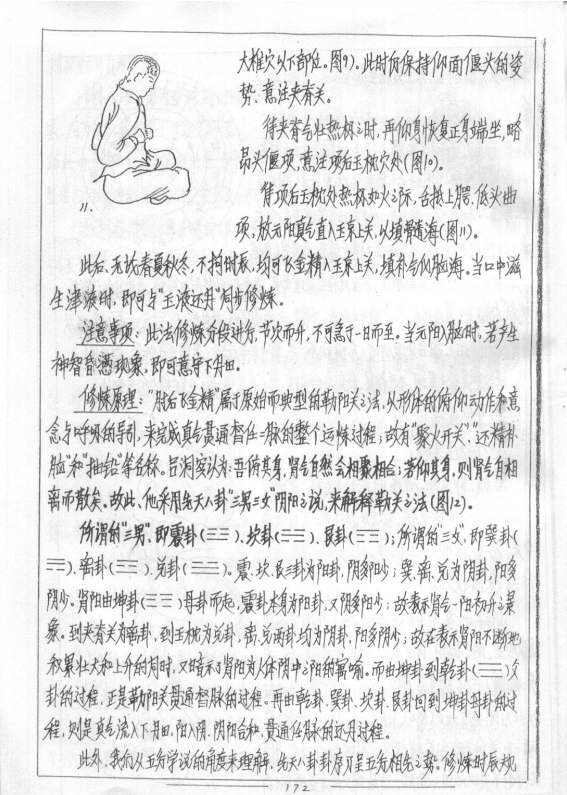 大椎穴以下部位。图9)。此时仍保持仰面偃头的姿
势、意注夹脊关。
待夹脊气壮热极之时,再仰身恢复正身端坐,略
昂头偃项,意注项后玉枕穴处(图10)。
11.
俟项后玉枕处热极如火之际,舌抵上腭、低头曲
项,放元阳真气直入玉京上关,以填髓海(图11)。
此后、无论春夏秋冬,不拘时辰,均可飞金精入玉京上关,填补气似脑海。当口中滋
生津液时,即可与"玉液还丹"同步修炼。
注意事项:此法修炼分段进行,节次而升,不可急于一日而至。当元阳入脑时、若产生
神智昏懑现象,即可意守下丹田。
修炼原理:"肘后飞金精"属于原始而典型的勒阳关之法,从形体的俯仰动作和意
念与呼吸的导引,来完成真气贯通督任二脉的整个运炼过程;故有"聚火开关"、"还精补
脑"和"抽铅"等名称。吕洞宾认为:吾俯其身,肾气自然会相聚相合;若仰其身,则肾气自相
离而散矣。故此、他采用先天八卦"三男三女"阴阳之说,来解释勒关之法(图12)。
所谓的"三男"、即震卦(☳)、坎卦(☵)、艮卦(☶);所谓的"三女",即巽卦(
☴)、离卦(☲)、兑卦(☱)。震、坎、艮三卦为阳卦,阴多阳少;巽、离、兑为阴卦,阳多
阴少。肾阳由坤卦(☷)母卦而起,震卦本身为阳卦,又阴多阳少;故表示肾气一阳初升之景
象。到夹脊关为离卦,到玉枕为兑卦,离、兑两卦均为阴卦、阳多阴少;故在表示肾阳不断地
积累壮大和上升的同时,又暗示了肾阳为人体阴中之阳的寓喻。而由坤卦到乾卦(☰)父
卦的过程,正是勒阳关贯通督脉的过程。再由乾卦、巽卦、坎卦、艮卦回到坤卦母卦的过
程,则是真气流入下丹田、阳入阴、阴阳合和、贯通任脉的还丹过程。
此外、我们从五行学说的角度来理解,先天八卦卦序乃呈五行相克之势。修炼时辰规
172